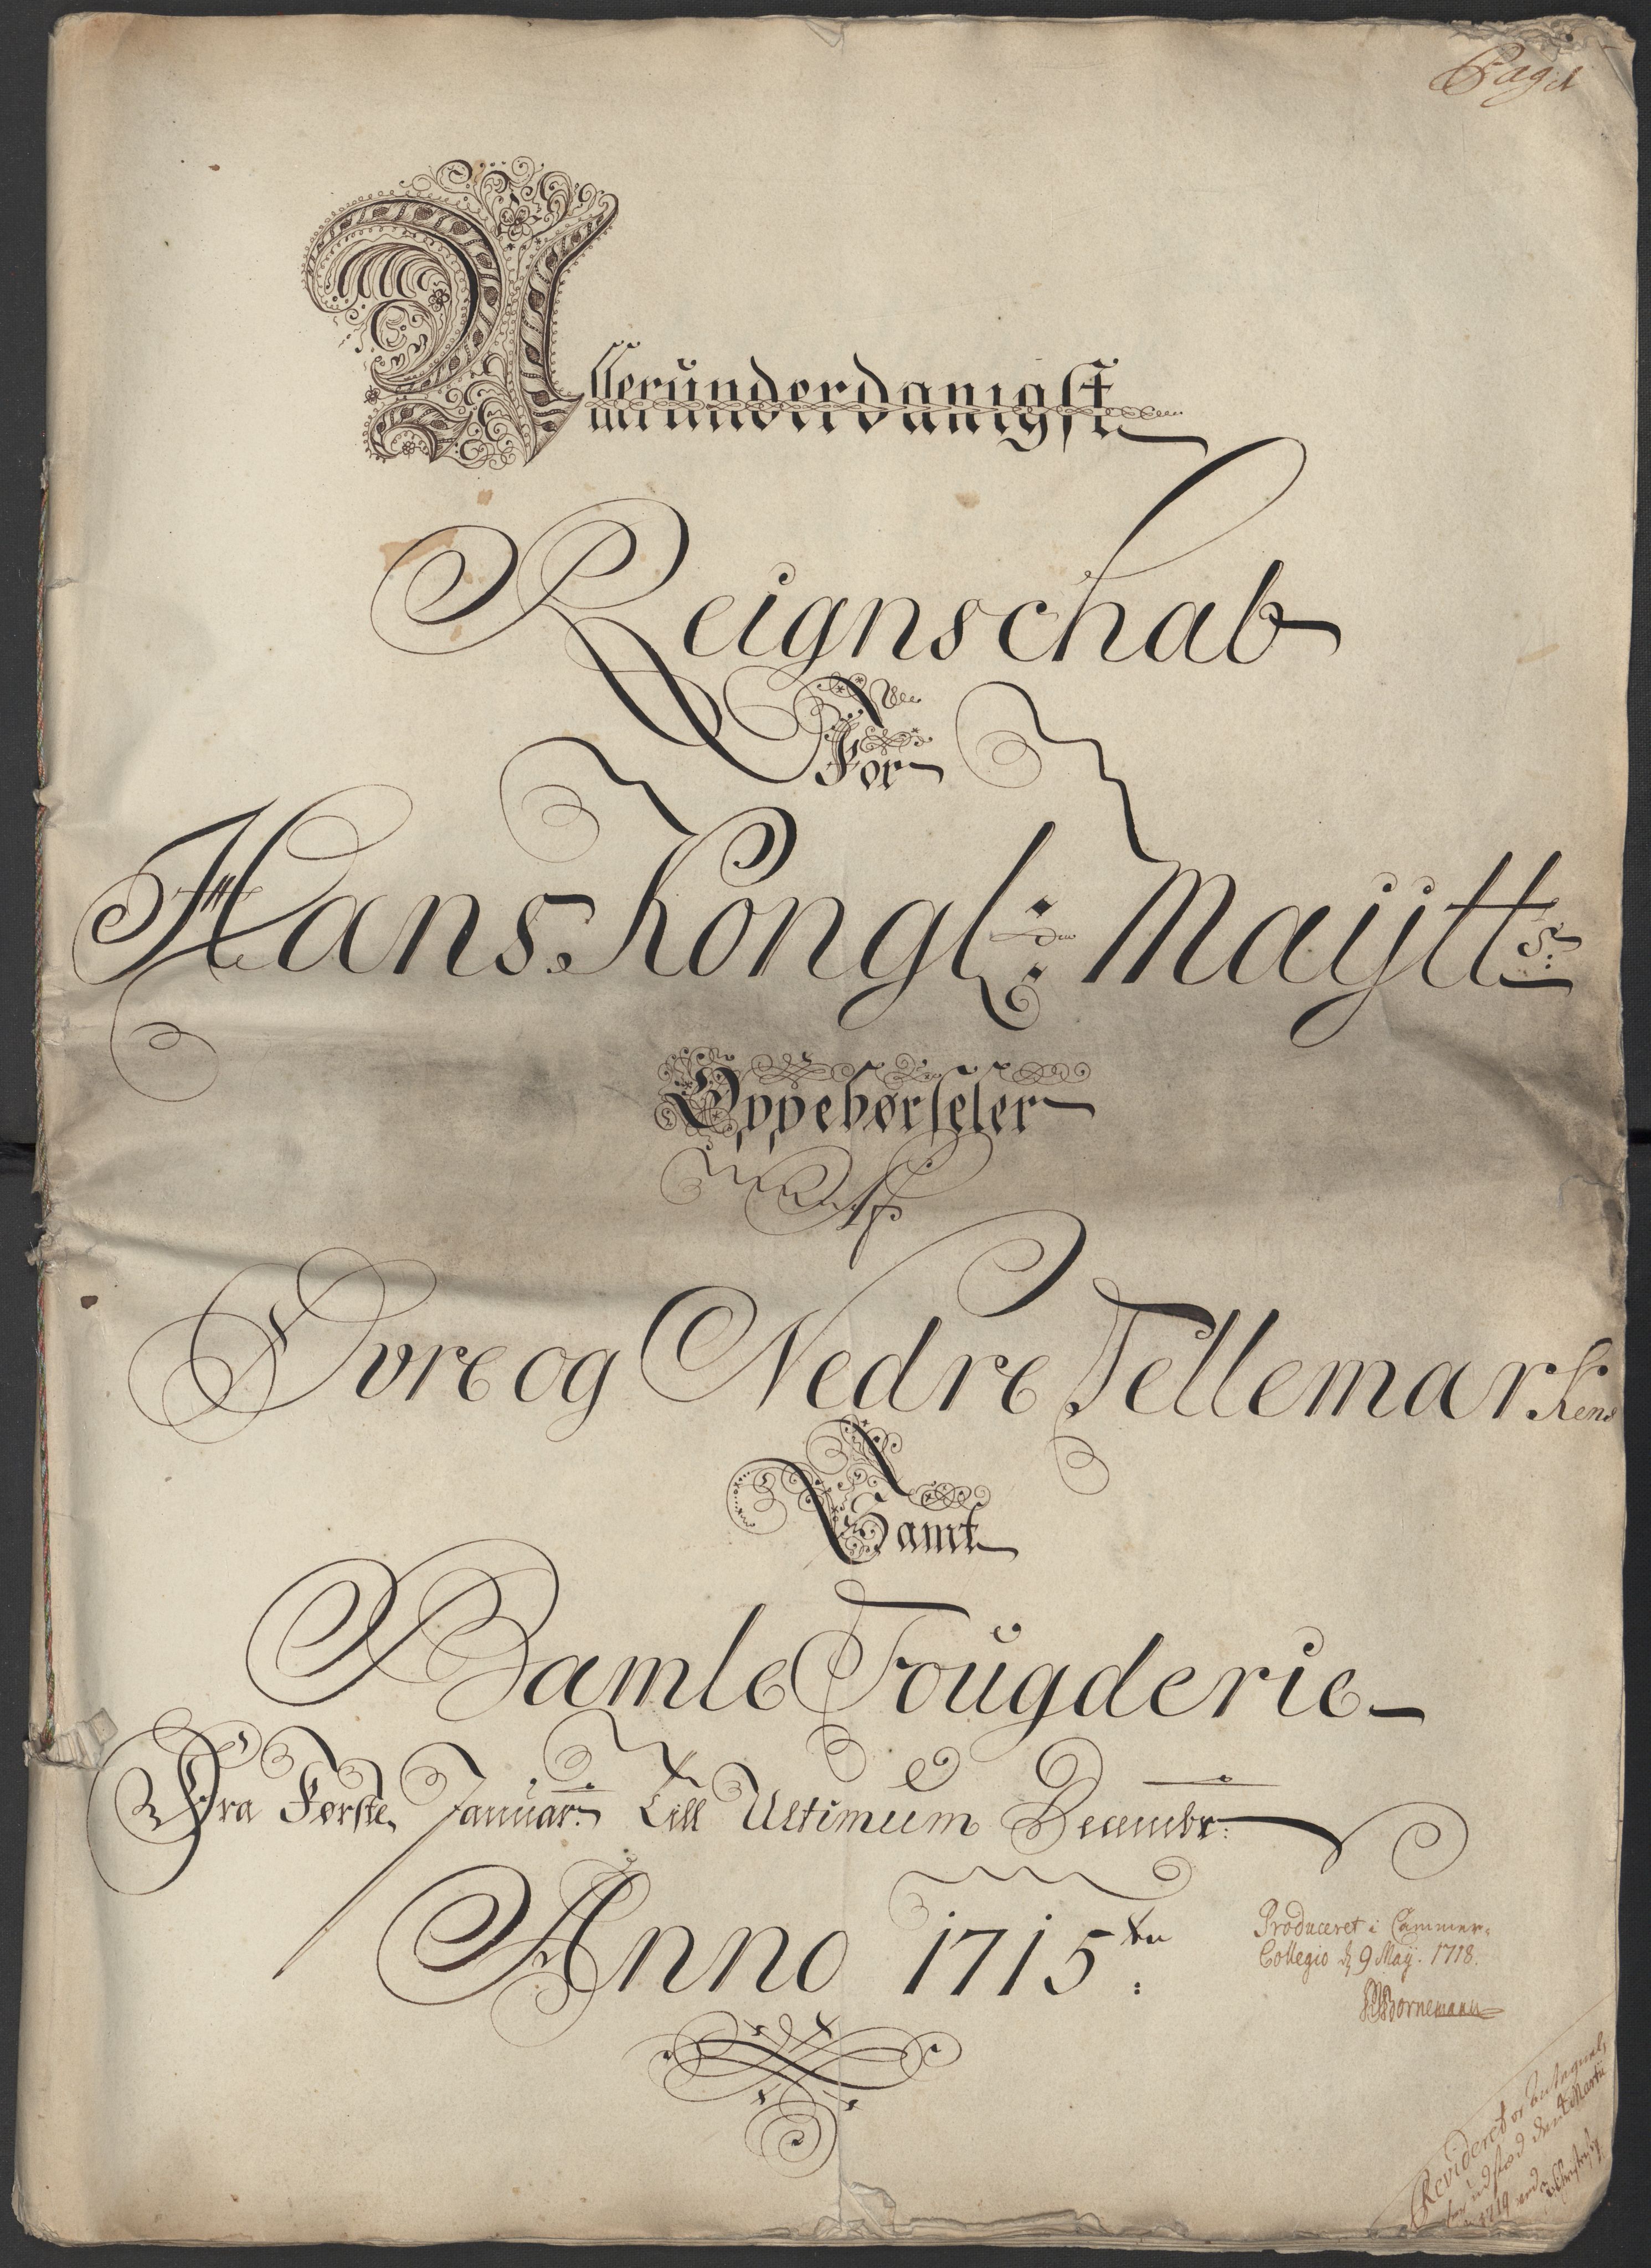 Alleründerdanigst
Reignschab
For
Hans Kongl: Maÿtts:
Oppebørseler
Af
Øvre og Nedre Tellemarkens
Samt
Bamle Foŭgderie
Fra Første Januar: Till Ultimum Decembr:
Anno 1715ten:
Produceret i Cammer-
Collegio d 9 Maÿ. 1718.
Bornemann
Revideret
1719